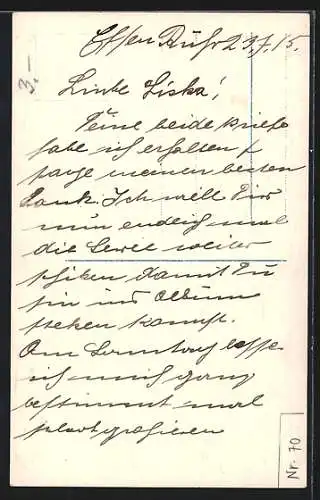 Essen Ruhr 23.7.15.
3.–
Liebe Liska!
Deine beide Briefe
habe ich erhalten &
sage meinen besten
Dank. Ich will Dir
nun endlich mal
die Serie weiter
schiken damit Du
sie ins Album
steken kannst.
Am Sonntag lasse
ich mich ganz
bestimmt mal
photografieren
Nr. 70